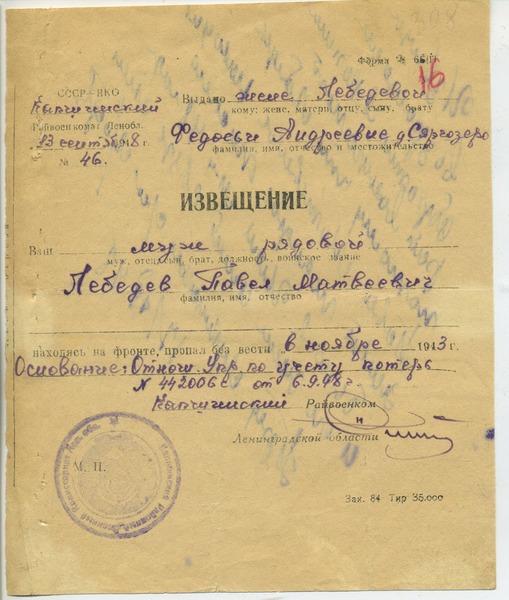 Форма № 6Б
16
СССР—НКО
Капшинский
Райвоенкомат Леноблˌ
13 сент 1948 г.
№ 46.
Выдано жене Лебедевой
кому: жене, матери, отцу, сыну, брату
Федосьи Андреевне д. Сяргозеро
фамилия, имя, отчество и местожительство
ИЗВЕЩЕНИЕ
Ваш муж рядовой
муж, отец, сын, брат, должность, воинское звание
Лебедев Павел Матвеевич
фамилия, имя, отчество
находясь на фронте, пропал без вести в ноябре 1943 г.
Основание: Отнош. Упр. по учету потерь
N 442006с от 6.9.48 г.
Капшинский Райвоенком
Ленинградской области
М. П.
Зак. 84 Тир 35.000